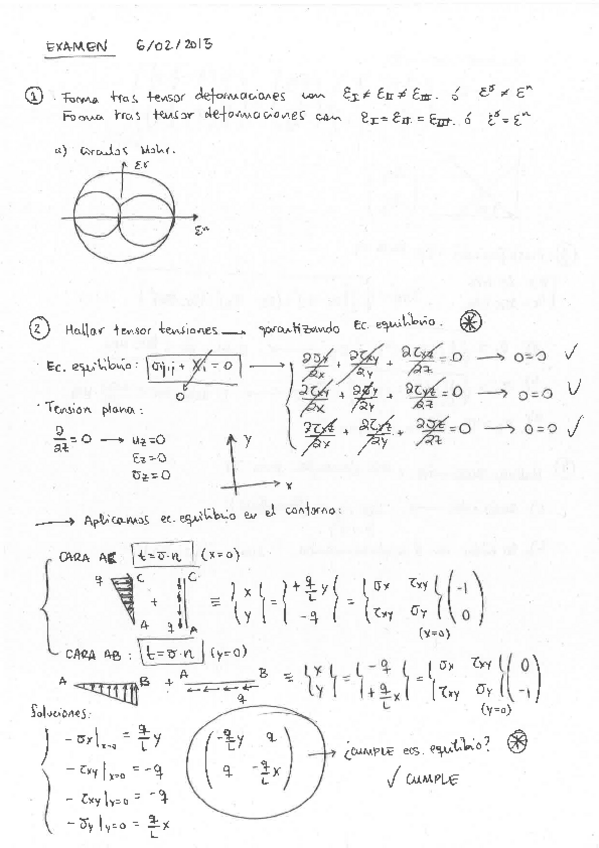 EXAMEN 6/02/2015
① · Forma tras tensor deformaciones con εI ≠ εII ≠ εIII. ó εᵟ ≠ εⁿ
Forma tras tensor deformaciones con εI = εII = εIII. ó εᵟ = εⁿ
a) Círculos Mohr.
εδ
εⁿ
② Hallar tensor tensiones → garantizando Ec. equilibrio. ⊛
· Ec. equilibrio: σij,j + Xi = 0 → ∂σx/∂x + ∂τxy/∂y + ∂τxz/∂z = 0 → 0=0 ✓
0
∂τxy/∂x + ∂σy/∂y + ∂τyz/∂z = 0 → 0=0 ✓
∂τxz/∂x + ∂τyz/∂y + ∂σz/∂z = 0 → 0=0 ✓
· Tension plana:
∂/∂z = 0 → uz=0
εz=0
σz=0
y
x
→ Aplicamos ec. equilibrio en el contorno:
CARA AC t=σ·n (x=0)
q C A + C q A ≡ {x y} = {+q/L y -q} = {σx τxy τxy σy} (-1 0)
(x=0)
CARA AB : t=σ·n (y=0)
A B + A B q ≡ {x y} = {-q +q/L x} = {σx τxy τxy σy} (0 -1)
(y=0)
Soluciones:
-σx|x=0 = q/L y
-τxy|x=0 = -q
-τxy|y=0 = -q
-σy|y=0 = q/L x
(-q/L y q
q -q/L x)
→ ¿CUMPLE ecs. equilibrio? ⊛
✓ CUMPLE